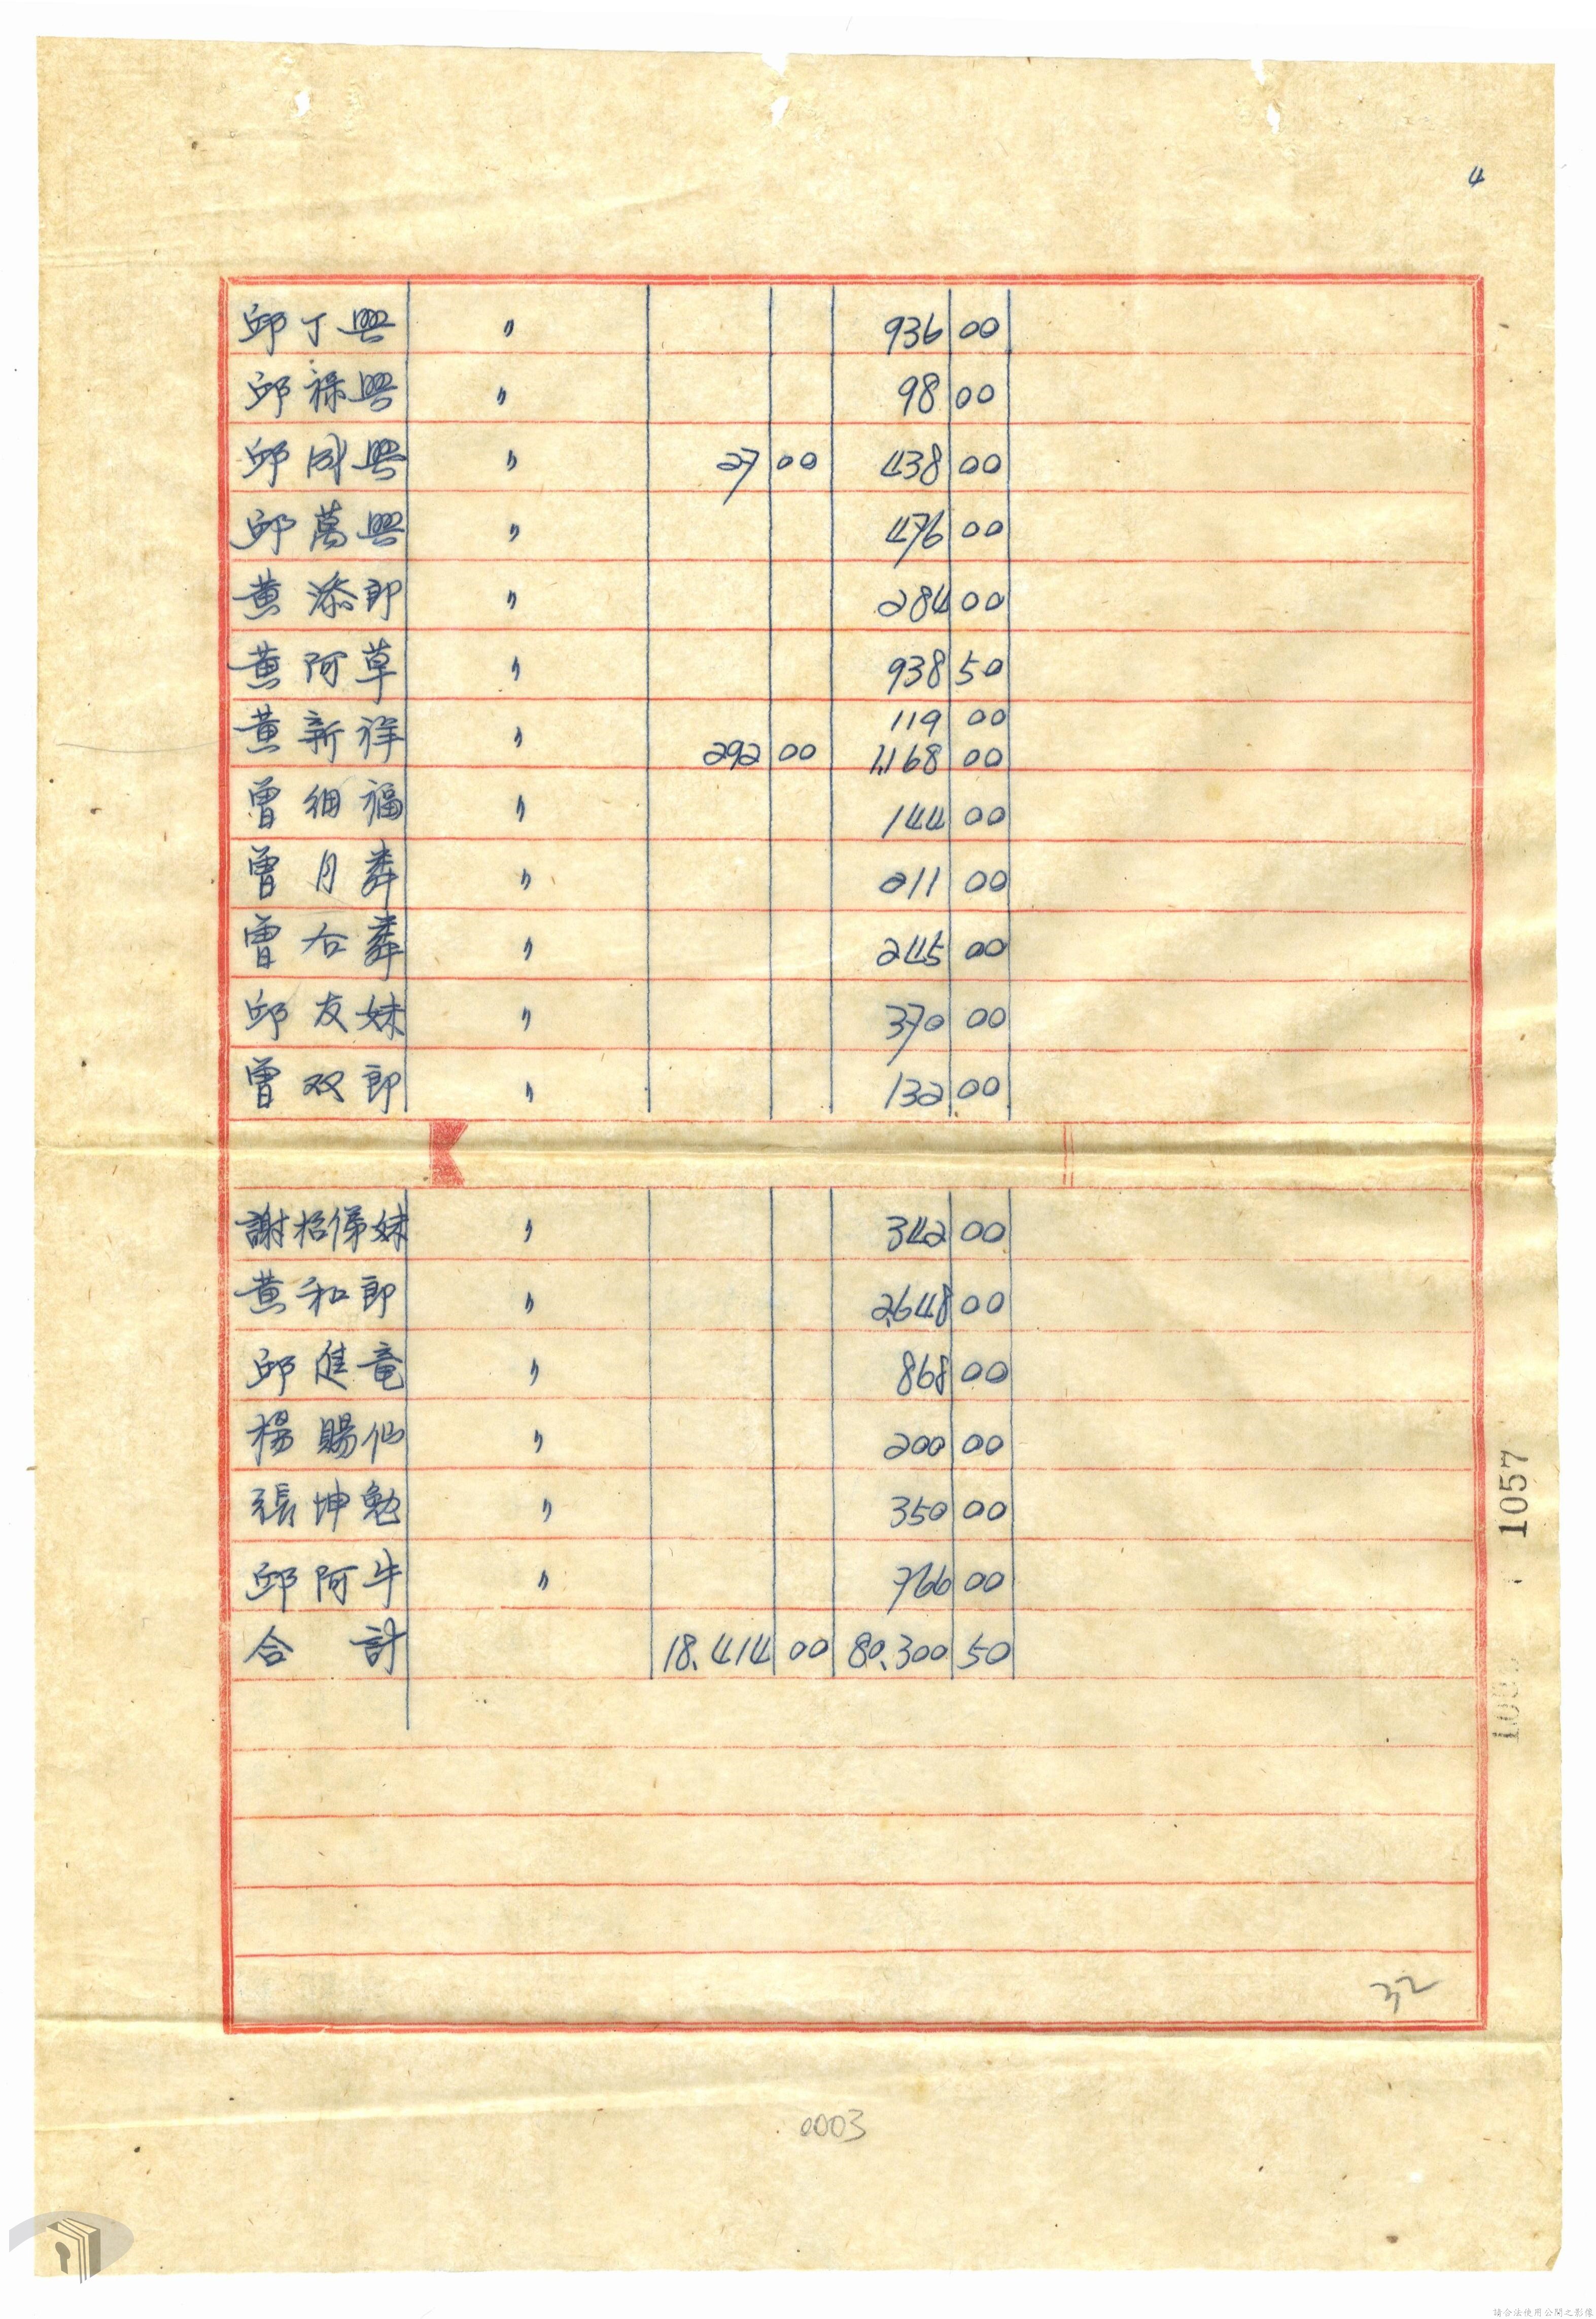 4
邱丁興 〃 936 00
邱祿興 〃 98 00
邱同興 〃 27 00 438 00
邱萬興 〃 476 00
黃添郎 〃 284 00
黃阿草 〃 938 50
黃新祥 〃 119 00
292 00 1,168 00
曾細福 〃 144 00
曾月 〃 211 00
曾右 〃 245 00
邱友妹 〃 370 00
曾双郎 〃 132 00
謝招俤妹 〃 342 00
黃和郎 〃 2,648 00
邱進竜 〃 868 00
楊賜仙 〃 200 00
張坤勉 〃 350 00
邱阿牛 〃 766 00
合計 18.414 00 80.300 50
1057
32
0003
請合法使用公開之影像